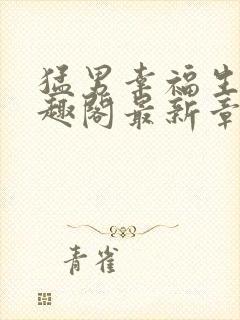 猛男幸福生
趣阁最新章
青雀